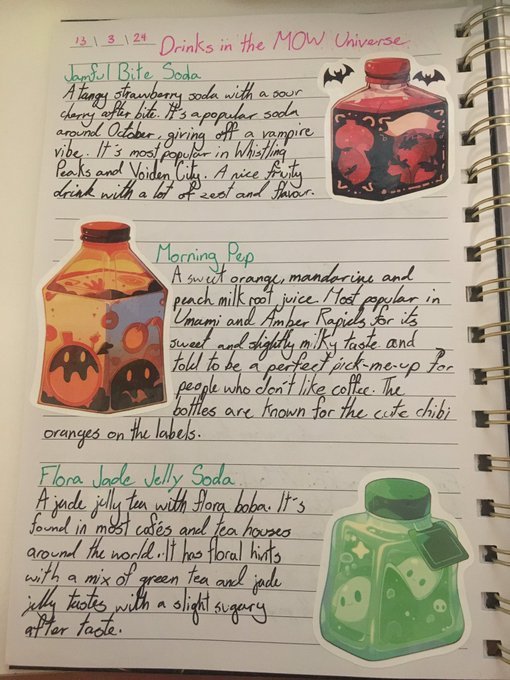 13 | 3 | 24
Drinks in the MOW Universe
Jamful Bite Soda
A tangy strawberry soda with a sour
cherry after bite. It's a popular soda
around October, giving off a vampire
vibe. It's most popular in Whistling
Peaks and Voiden City. A nice fruity
drink with a lot of zest and flavour.
Morning Pep
A sweet orange, mandarine and
peach milk root juice. Most popular in
Umami and Amber Rapids for its
sweet and slightly milky taste and
told to be a perfect pick-me-up for
people who don't like coffee. The
bottles are known for the cute chibi
oranges on the labels.
Flora Jade Jelly Soda
A jade jelly tea with flora boba. It's
found in most cafés and tea houses
around the world. It has floral hints
with a mix of green tea and jade
jelly tastes with a slight sugary
after taste.